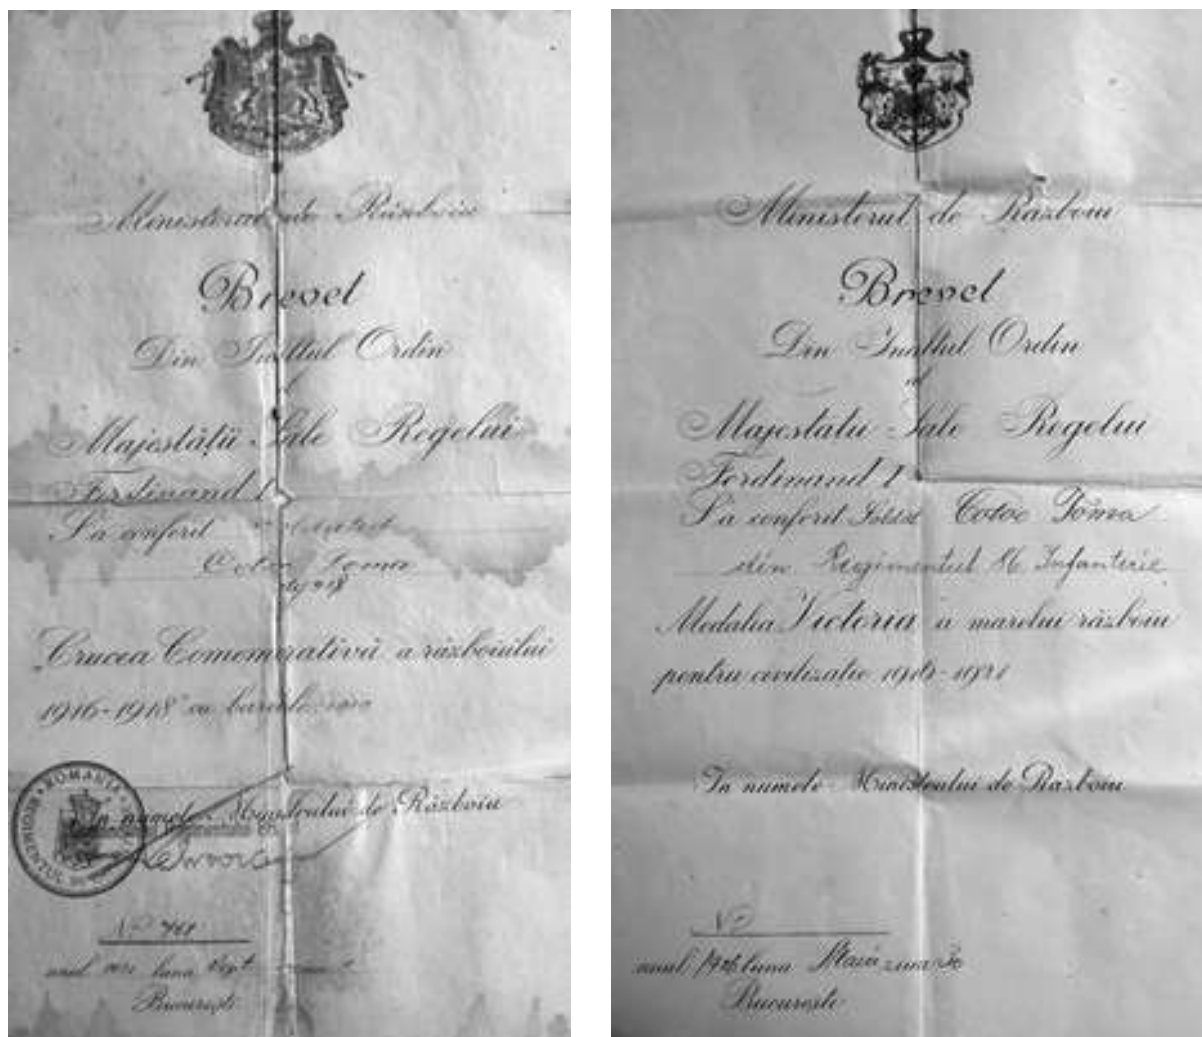 Ministerul de Război
Brevet
Din Inaltul Ordin
al
Majestății Sale Regelui
Ferdinand I
S'a conferit
Cotoc Toma
"Crucea Comemorativă a războiului
1916-1918" cu baretele
ROMANIA
REGIMENTUL
In numele Ministrului de Război
No
anul luna Sept.
București
Ministerul de Razboiu
Brevet
Din Inaltul Ordin
al
Majestatii Sale Regelui
Ferdinand I
S'a conferit Soldat Cotoc Toma
din Regimentul 86 Infanterie
Medalia Victoria a marelui războiu
pentru civilizatie 1916-1921
In numele Ministrului de Razboiu
No
anul luna ziua
Bucureşti